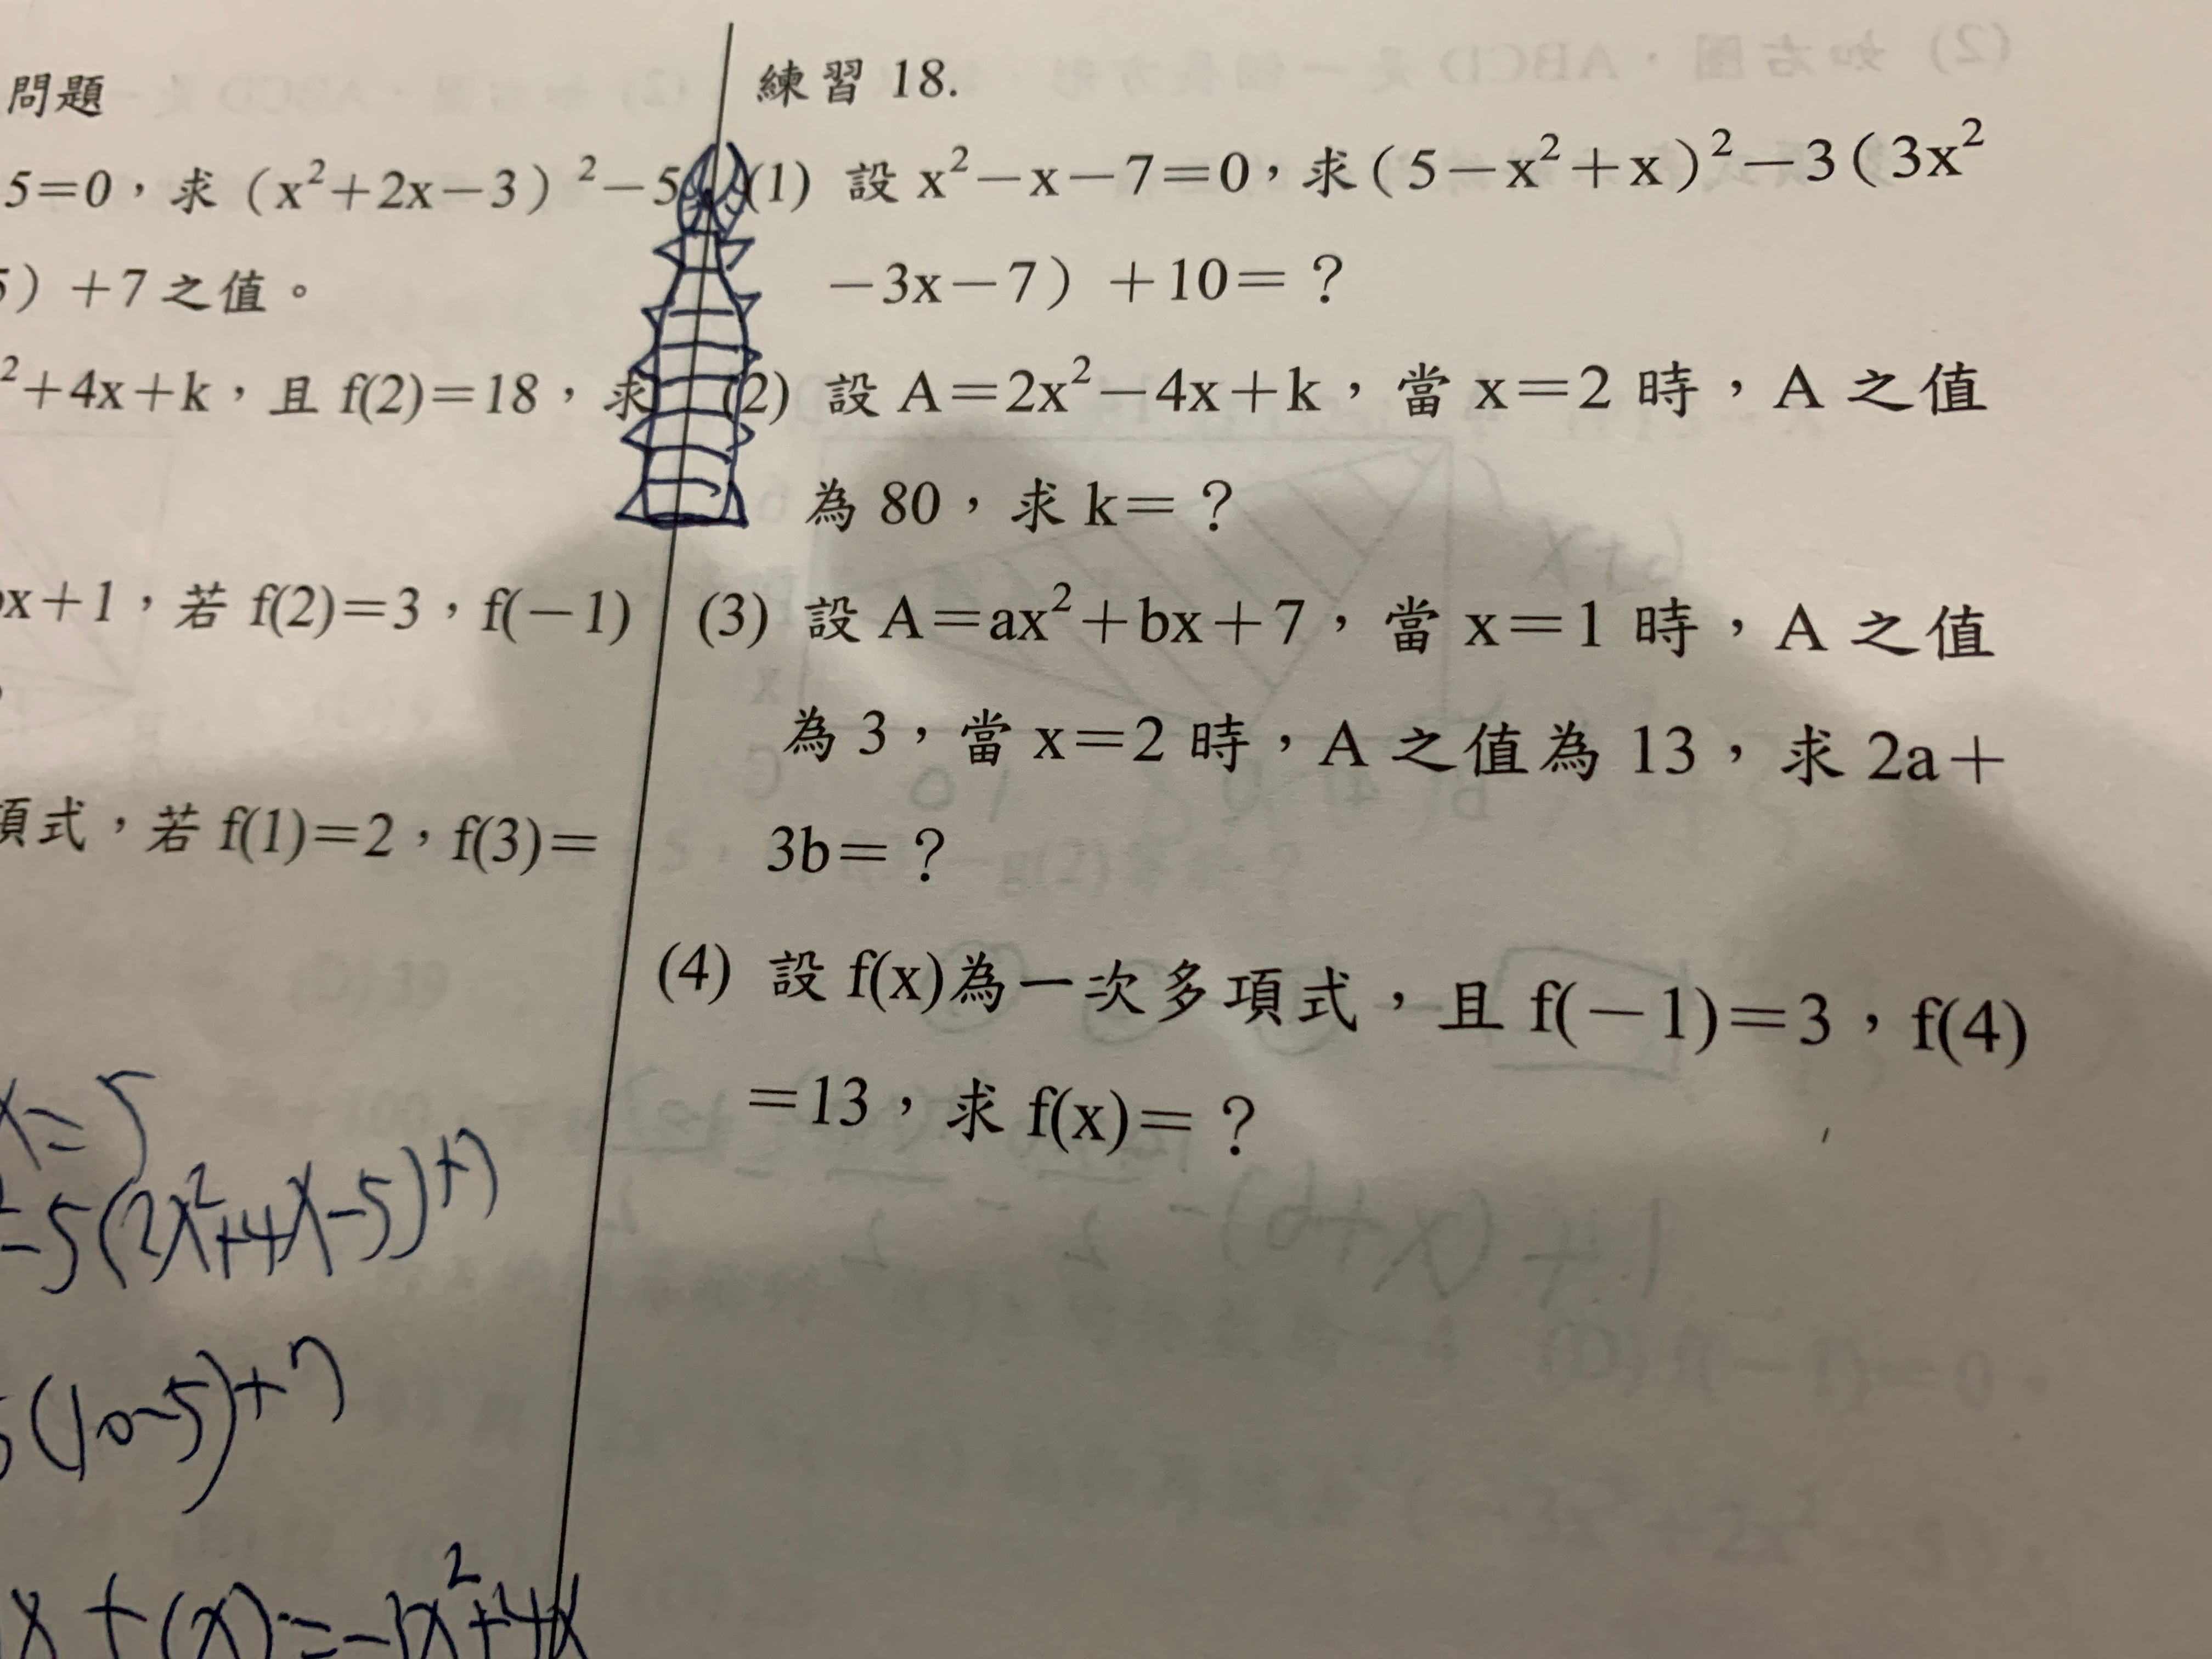 問題
5=0，求（x²+2x-3）²-5
）+7之值。
²+4x+k，且 f(2)=18，求
x+1，若 f(2)=3，f(-1)
項式，若 f(1)=2，f(3)=
x=5
-5(2x²+4x-5)+7
(10-5)+7
x+(x)=-1x²+4x
練習 18.
(1) 設 x²-x-7=0，求（5-x²+x）²-3（3x²
-3x-7）+10=？
(2) 設 A=2x²-4x+k，當 x=2 時，A 之值
為 80，求 k=？
(3) 設 A=ax²+bx+7，當 x=1 時，A 之值
為 3，當 x=2 時，A 之值為 13，求 2a+
3b=？
(4) 設 f(x)為一次多項式，且 f(-1)=3，f(4)
=13，求 f(x)=？